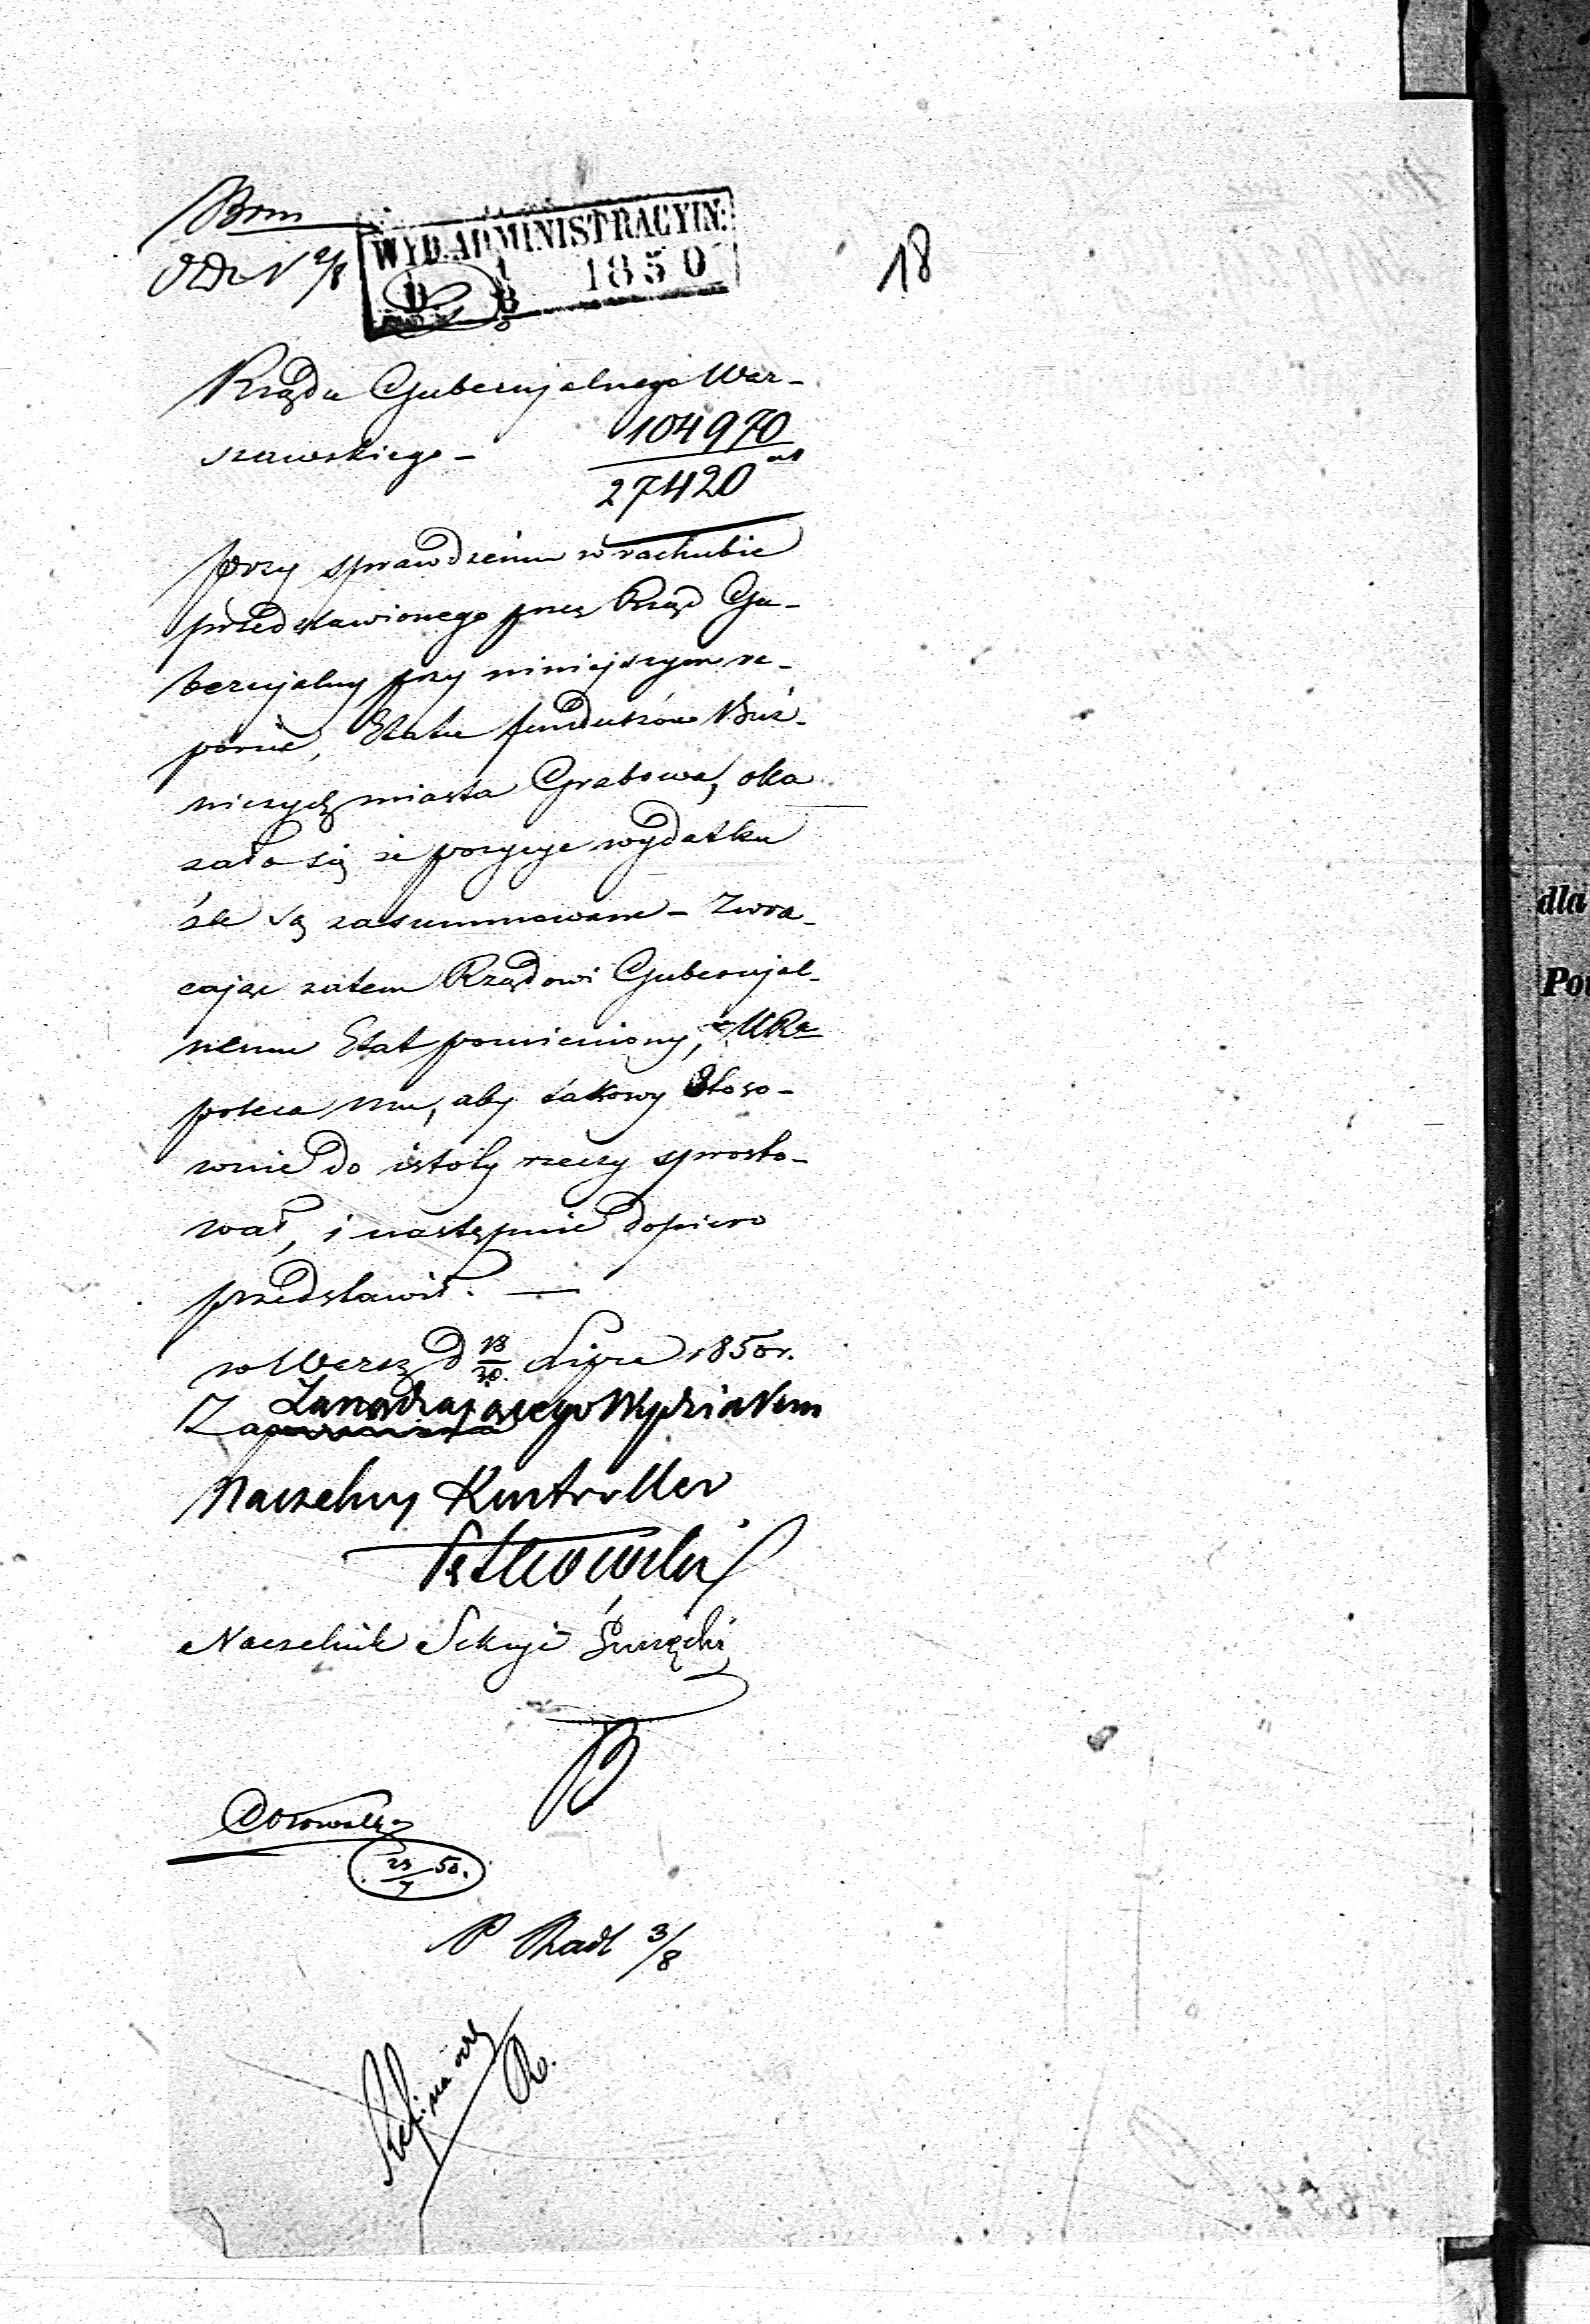 WYD. ADMINISTRACYIN:
1850
18
Rządu Gubernjalnego War-
szawskiego -
104970
27420
przy sprawdzeniu w rachubie
przedstawionego przez Rząd Gu-
bernjalny przy niniejszym ra-
porcie, Etatu funduszów Bóż-
niczych miasta Grabowa, oka
zało się że pozycye wydatku
źle są zasummowane - Zwra-
cając zatem Rządowi Gubernjal-
nemu Etat pomieniony,
poleca mu, aby takowy stoso-
wnie do istoty rzeczy sprosto-
wał, i następnie dopiero
przedstawił. —
w Warsz d 18/30 Lipca 1850 r.
Za Zarządzającego Wydziałem
Naczelny Kontroller
Naczelnik Sekcyi
29/7 50.
3/8
dla